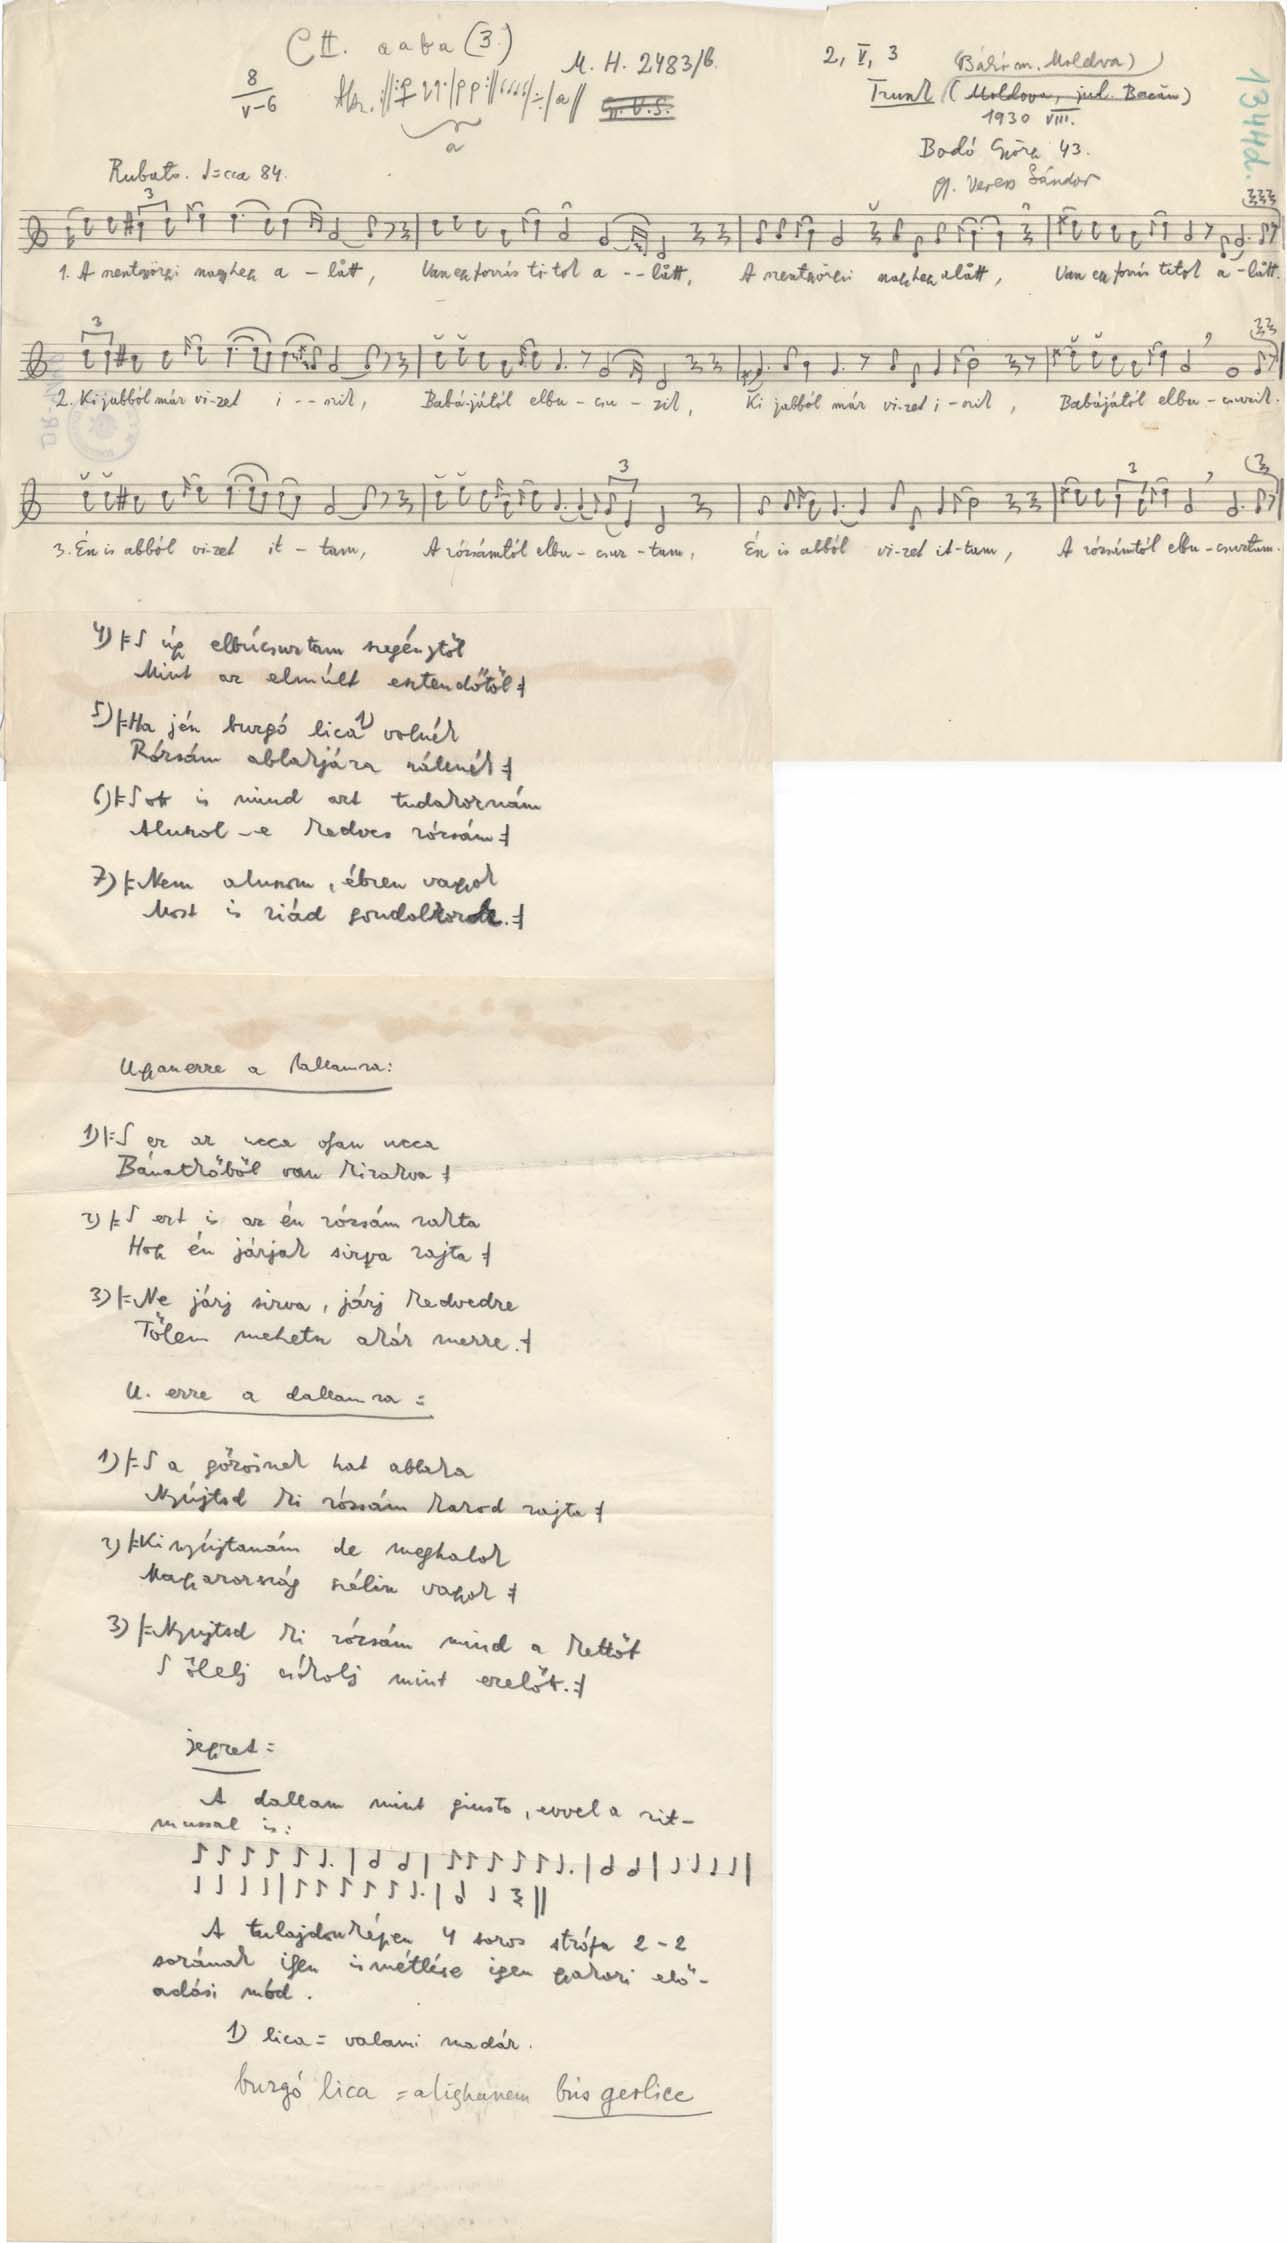 C II. a a b a (3.)
8
V–6
M. H. 2483/b.
2, V, 3
(Bákó m. Moldva)
Trunk (Moldova, jud. Bacău)
1930 VIII.
Bodó Györgi 43.
gy. Veress Sándor
1344d.
a
Rubato. ♩=cca 84.
3
1. A szentgyörgyi nagyhegy a – látt, Van egy forrás titol a - - látt, A szentgyörgyi nagyhegy alátt, Van egy forrás titol a – látt.
3
2. Ki jabból már vi-zet i - - szik, Babá-jától elbu – csu – zik, Ki jabból már vi-zet i – szik, Babájától elbu – csuzik.
3 3
3. Én is abból vi-zet it – tam, A rózsámtól elbu – csuz – tam, Én is abból vi-zet it-tam, A rózsámtól elbu – csuztam.
4) |: S úgy elbúcsuztam szegénytől
Mint az elmúlt esztendőtől :|
5) |: Ha jén burgó lica 1) volnék
Rózsám ablakjára szálnék :|
6) |: S ott is mind azt tudakoznám
Aluszol-e kedves rózsám :|
7) |: Nem aluszom, ébren vagyok
Most is riád gondolkozok. :|
Ugyanerre a dallamra:
1) |: S ez az ucca ojan ucca
Bánatkőből van kirakva :|
2) |: S ezt is az én rózsám rakta
Hogy én járjak sirva rajta :|
3) |: Ne járj sirva, járj kedvedre
Tőlem mehetsz akár merre. :|
U. erre a dallamra:
1) |: S a gőzösnek hat ablaka
Nyújtsd ki rózsám karod rajta :|
2) |: Ki nyújtanám de meghalok
Magyarország szélin vagyok :|
3) |: Nyujtsd ki rózsám mind a kettőt
S ölelj csókolj mint ezelőtt. :|
jegyzet:
A dallam mint giusto, evvel a rit-
mussal is:
A tulajdonképen 4 soros strófa 2–2
sorának ismétlése igen gyakori elő-
adási mód.
1) lica = valami madár.
burgó lica = alighanem bús gerlice